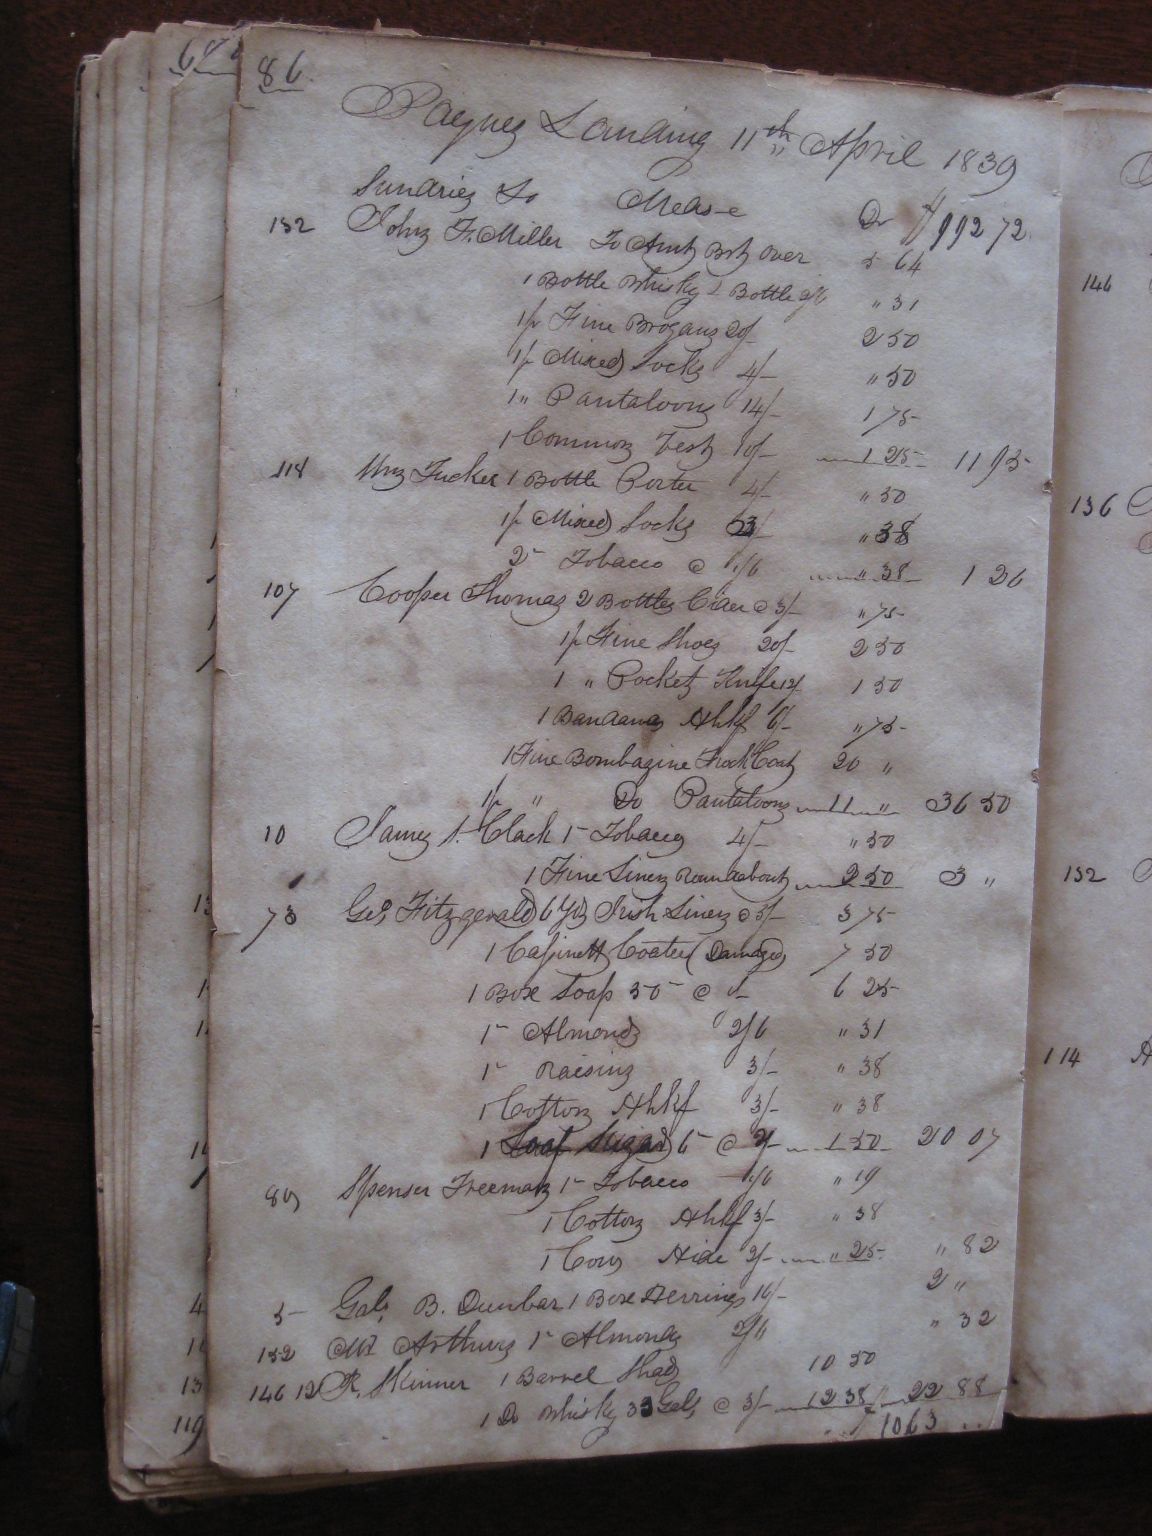 86.
Paynes Landing 11th April 1839
Sundries To Mdse Dr $992 72
132 John F. Miller To Amt Brt over 5 64
1 Bottle Whisky & Bottle 2/6 " 31
1 pr Fine Brogans 20/- 2 50
1 pr Mixed Socks 4/- " 50
1 " Pantaloons 14/- 1 75
1 Common Vest 10/- 1 25 11 95
118 Wm Tucker 1 Bottle Porter 4/- " 50
1 pr Mixed Socks 3/- " 38
2 - Tobacco @ 1/6 " 38 1 26
107 Cooper Thomas 2 Bottles Cider @ 3/- " 75
1 pr Fine Shoes 20/- 2 50
1 " Pocket Knife 12/- 1 50
1 Bandana Hhkf 6/- " 75
1 Fine Bombazine Frock Coat 20 "
1 pr " Do Pantaloons 11 " 36 50
10 James S. Clack 1 - Tobacco 4/- " 50
1 Fine Linen Roundabout 2 50 3 "
73 Geo. Fitzgerald 6 Yds Irish Linen @ 5/- 3 75
1 Casinett Coatee (Damaged) 7 50
1 Box Soap 50 - @ 1/- 6 25
1 - Almonds 2/6 " 31
1 - Raisins 3/- " 38
1 Cotton Hhkf 3/- " 38
1 Loaf Sugar 6 - @ 2/- 1 50 20 07
89 Spenser Freeman 1 - Tobacco 1/6 " 19
1 Cotton Hhkf 3/- " 38
1 Cow Hide 2/- " 25 " 82
5 Gab. B. Dunbar 1 Box Herrings 16/- 2 "
152 Mr Arthurs 1 - Almonds 2/6 " 32
146 12 R. Skinner 1 Barrel Shad 10 50
1 Do Whisky 33 Gals @ 3/- 12 38 22 88
$1063
146
136
132
114
119